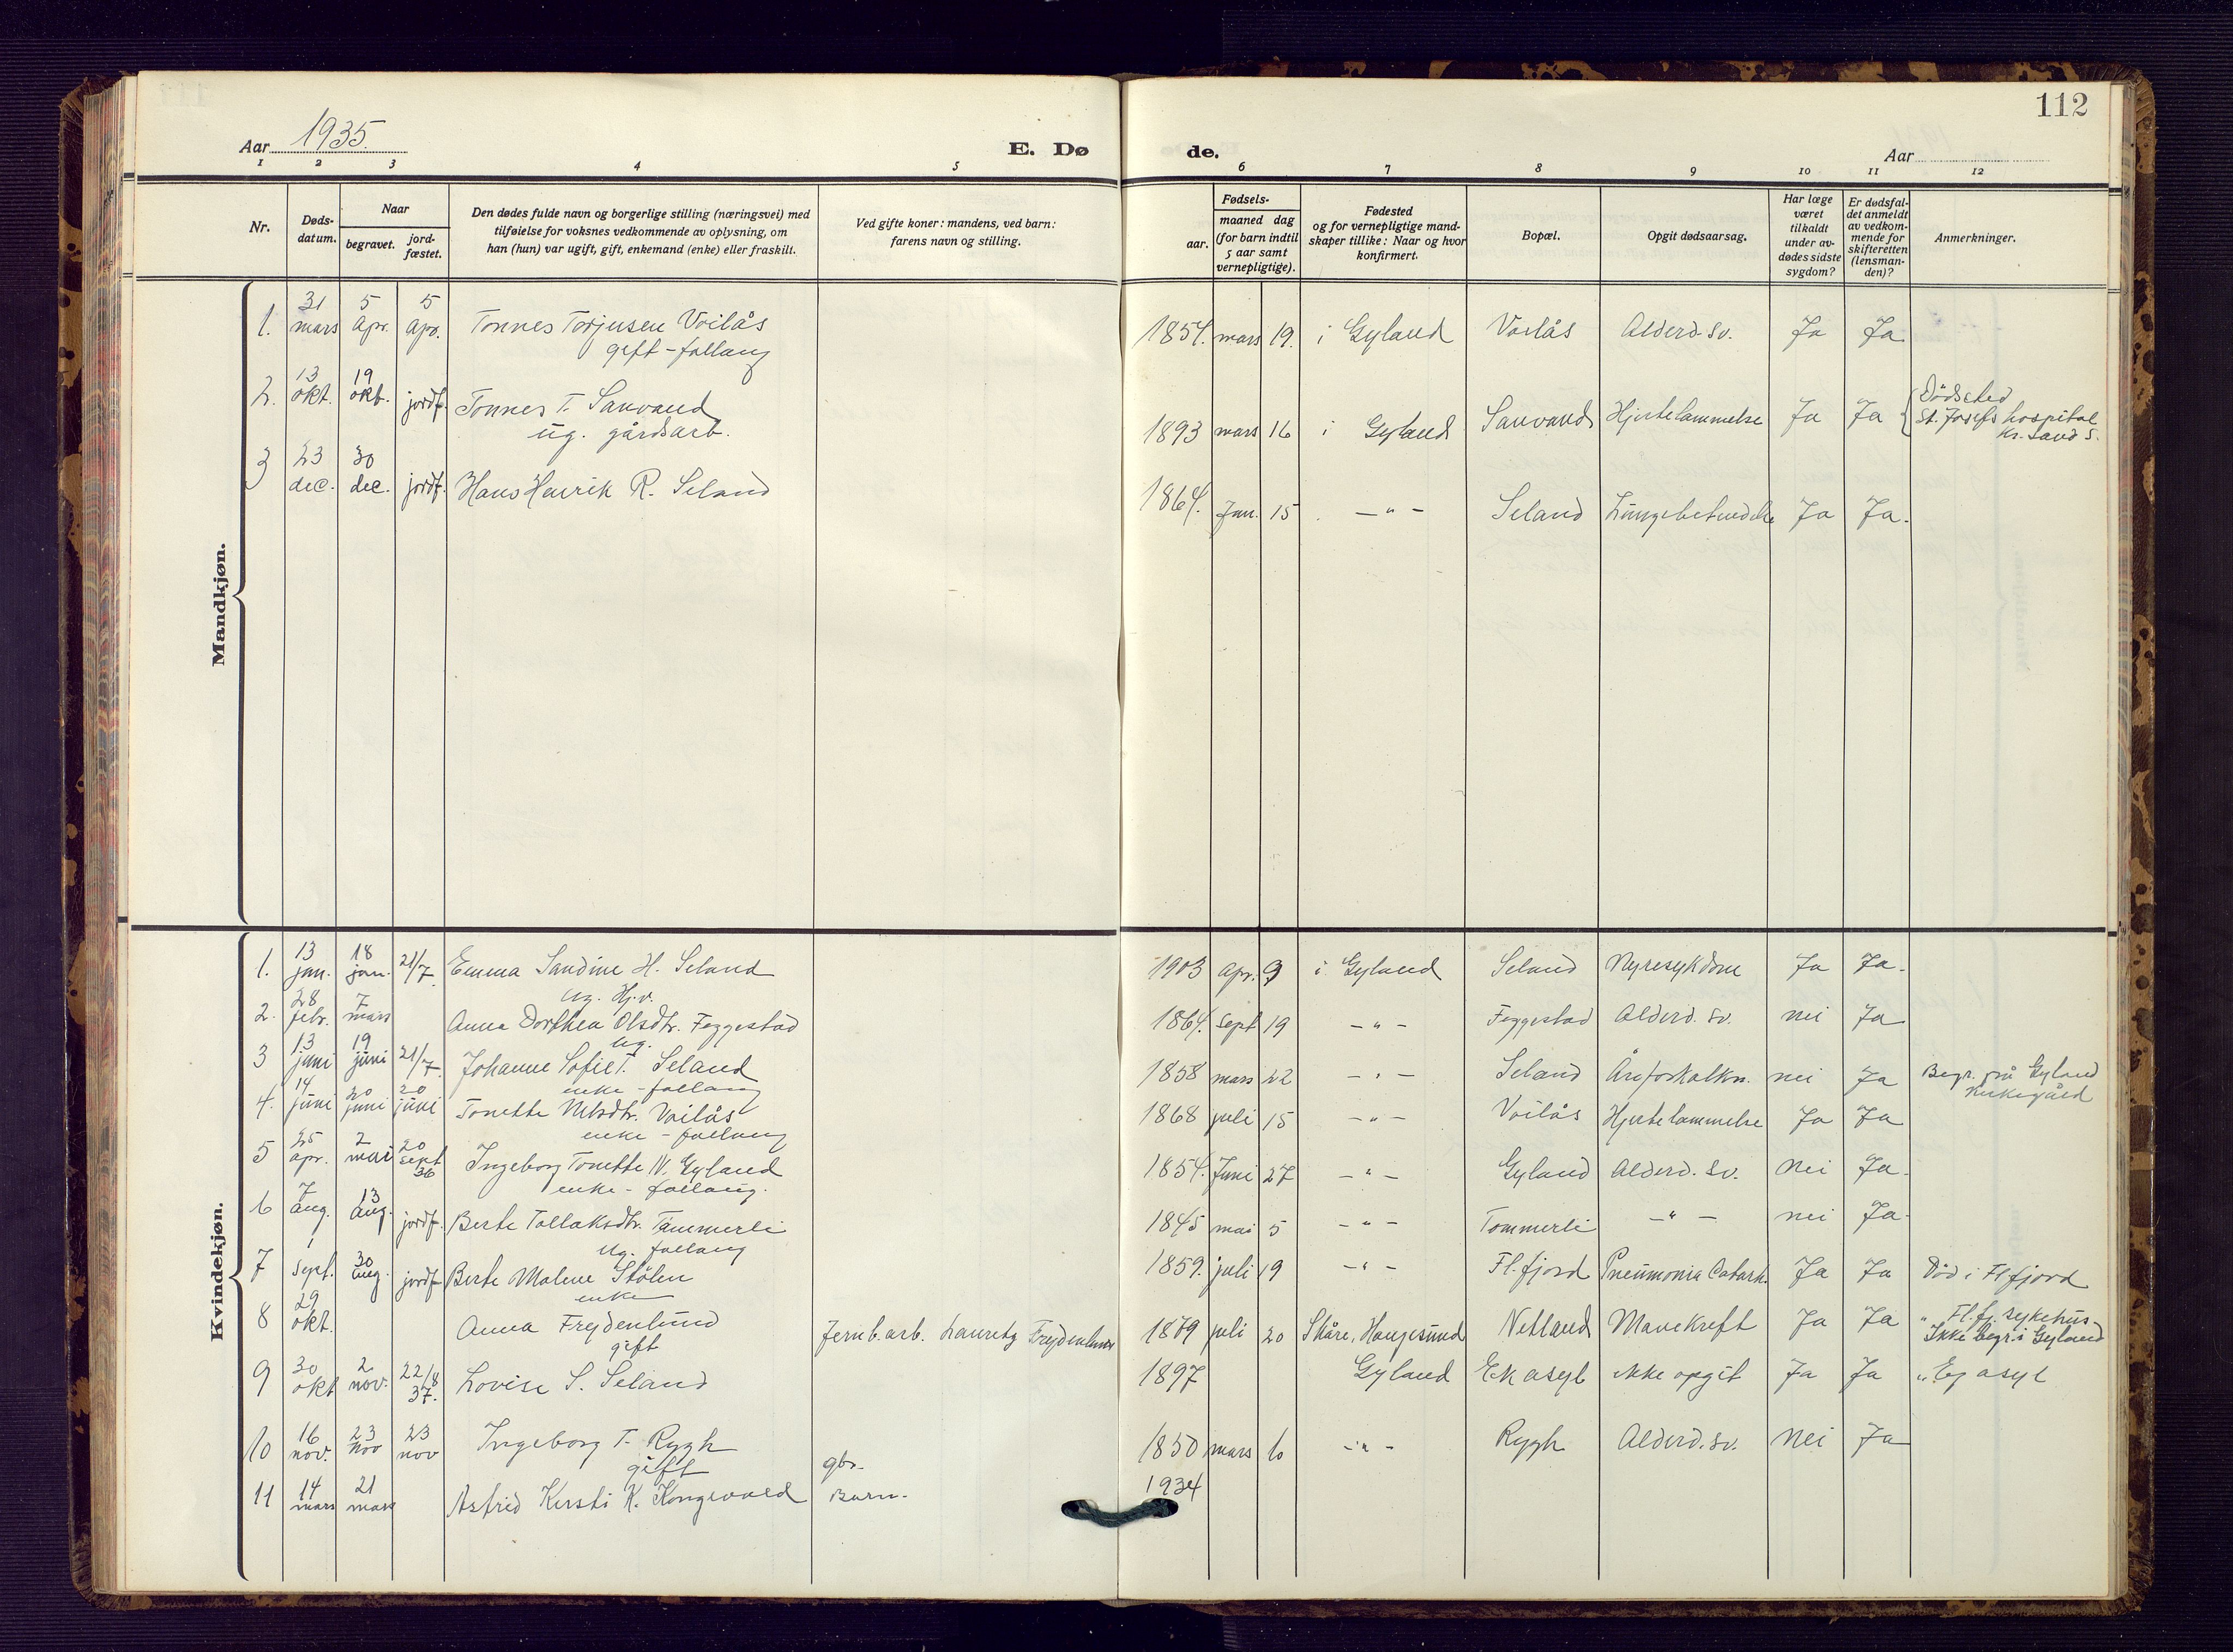 112
Aar 1935.
E. Dø de.
Aar
1 2 3 4 5 6 7 8 9 10 11 12
Nr.
Døds-datum.
Naar
begravet.
jord-fæstet.
Den dødes fulde navn og borgerlige stilling (næringsvei) med
tilføielse for voksnes vedkommende av oplysning, om
han (hun) var ugift, gift, enkemand (enke) eller fraskilt.
Ved gifte koner: mandens, ved barn:
farens navn og stilling.
Fødsels-
aar.
maaned dag
(for barn indtil
5 aar samt
vernepligtige).
Fødested
og for vernepligtige mand-
skaper tillike: Naar og hvor
konfirmert.
Bopæl.
Opgit dødsaarsag.
Har læge
været
tilkaldt
under av-
dødes sidste
sygdom?
Er dødsfal-
det anmeldt
av vedkom-
mende for
skifteretten
(lensman-
den)?
Anmerkninger.
Mandkjøn.
1. 31 mars 5 Apr. 5 Apr. Tønnes Torjusen Voilås 1854. mars 19. i Gyland Voilås Alderd.sv. Ja Ja
gift - follaug
2. 13 okt. 19 okt. jordf. Tønnes T. Sanvand 1893 mars 16 i Gyland Sanvand Hjertelammelse Ja Ja Dödsted
ug. gårdsarb. St. Josefs hospital
Kr.sand S.
3 23 dec. 30 dec. jordf. Hans Henrik R. Seland 1864. Jan. 15 - " - Seland Lungebetendelse Ja Ja.
Kvindekjøn.
1. 13 jan. 18 jan. 21/7. Emma Sandine H. Seland 1903 apr. 9 i Gyland Seland Nyresykdom Ja Ja.
ug. Hj.v.
2. 28 febr. 7 mars Anna Dorthea Olsdtr. Feggestad 1864. sept 19 - " - Feggestad Alderd. sv. nei Ja
ug.
3 13 juni 19 juni 21/7. Johanne Sofie T. Seland 1858 mars 22 - " - Seland Åreforkalkn. nei Ja Begr. på Gyland
enke - follaug Kirkegård
4. 14 juni 20 juni 20 juni Tonette Nilsdtr. Voilås 1868 juli 15 - " - Voilås Hjertelammelse Ja Ja
enke - follaug
5 25 apr. 2 mai 20 sept 36 Ingeborg Tonette N. Gyland 1854. Juni 27 - " - Gyland Alderd. sv. Nei Ja.
enke - follaug.
6 7 aug. 13 aug. jordf. Berte Tollaksdtr. Tømmerli 1845 mai 5 - " - Tommerli - " - nei Ja
ug. follaug
7 1 sept. 30 aug. jordf Berte Malene Stölen 1859. juli 9 - " - Fl.fjord Pneumonia Catarh. Ja Ja Död i Flfjord
enke
8 29 okt. Anna Frejdenlund Jernb.arb. Lauretz Frejdenlund 1879 juli 20 Skåre, Haugesund Netland Mavekreft Ja Ja " Fl.fj. sykehus
gift Ikke begr. i Gyland
9 30 okt 2 nov. 22/8 37. Lovise S. Seland 1897 Gyland Ek asyl ikke opgit Ja Ja " Eg asyl
10 16 nov. 23 nov 23 nov Ingeborg T. Rygh 1850 mars 6 - " - Rygh Alderd.sv. Nei Ja
gift gbr.
11 14 mars 21 mars Astrid Kirsti K. Kongevold Barn. 1934